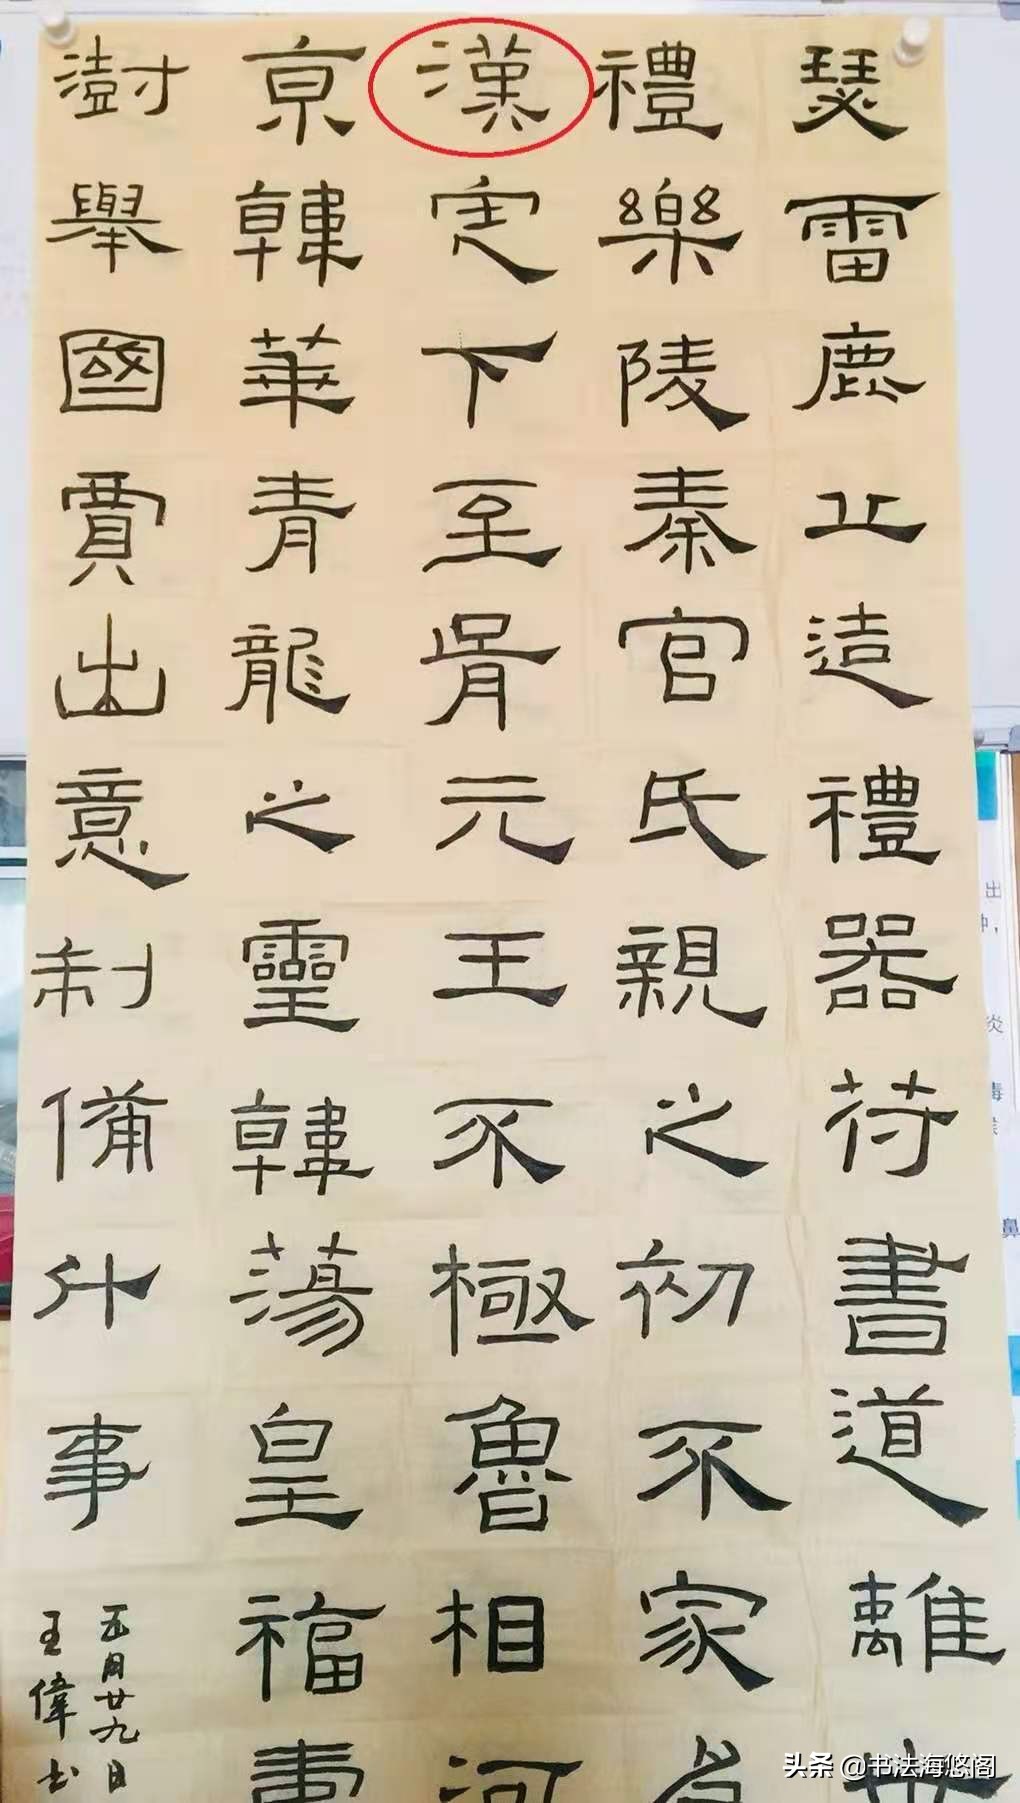 瑟雷鹿造禮器符書道離世
禮樂陵秦官氏親之初不家
漢定下至胥元王不極魯相河
京韓華青龍之靈韓蕩皇福
澍舉國賈出意制備升事
五月廿九日
王偉书
出
炎
毒
鼻
头条 @书法海悠阁